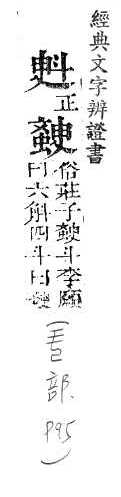 經典文字辨證書
斞正
俗莊子斗李願
曰六斛四斗曰
(部. P95)